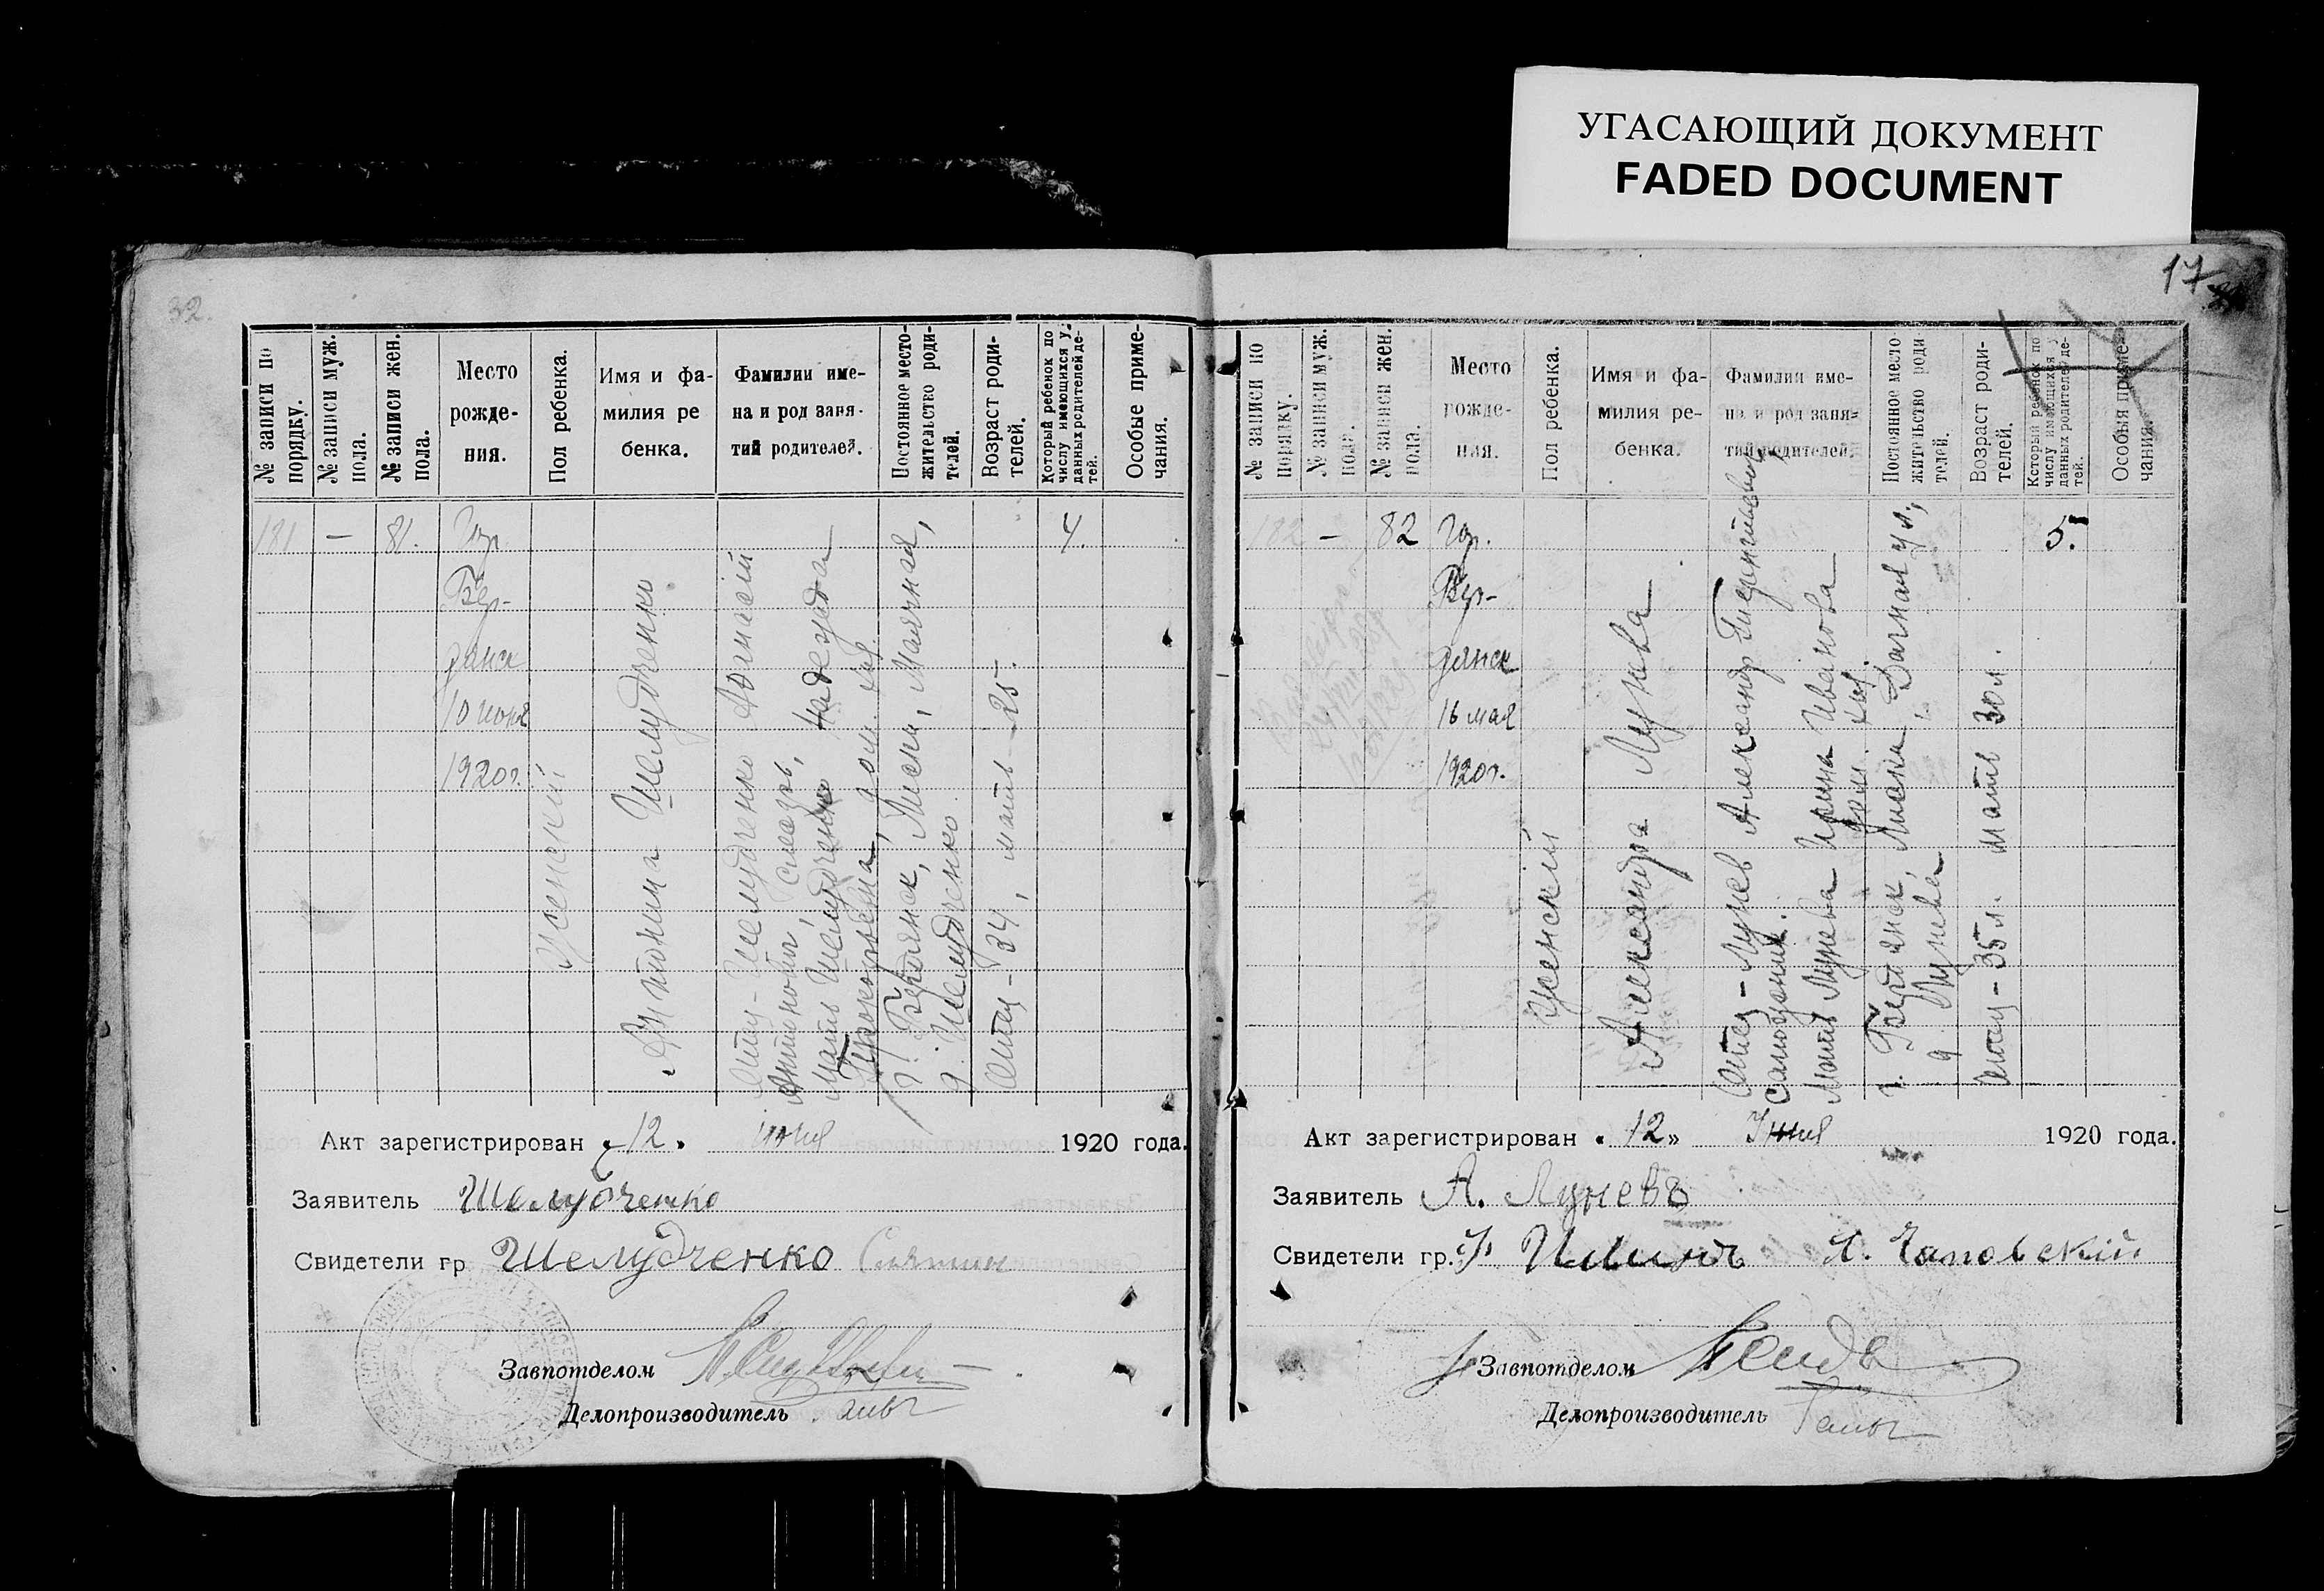 УГАСАЮЩИЙ ДОКУМЕНТ
FADED DOCUMENT
32.
№ записи по порядку.
№ записи муж. пола.
№ записи жен. пола.
Место рожде-
ния.
Пол ребенка.
Имя и фа-
милия ре
бенка.
Фамилии име-
на и род заня-
тий родителей.
Постоянное место-
жительство роди-
телей.
Возраст роди-
телей.
Который ребенок по
числу имеющихся у
данных родителей де-
тей.
Особые приме-
чания.
181
—
81.
Гор.
Бер-
дянск
10 июня
1920 г.
Женский
Антонина Шелудченко
Отец - Шелудченко Афанасий
Антонович, слесарь,
мать Шелудченко Надежда
Прокофьевна, дом. хоз.
г. Бердянск, Лиски, Маячная,
д. Шелудченко
Отец - 34, мать - 25.
4.
Акт зарегистрирован „12" июня 1920 года.
Заявитель Шелудченко
Свидетели гр Шелудченко
Завпотделом
Делопроизводитель
17
№ записи по порядку.
№ записи муж. пола.
№ записи жен. пола.
Место
рожде-
ния.
Пол ребенка.
Имя и фа-
милия ре-
бенка.
Фамилии име-
на и род заня-
тий родителей.
Постоянное место
жительство роди
телей.
Возраст роди-
телей.
Который ребенок по
числу имеющихся у
данных родителей де-
тей.
Особые приме-
чания.
182
—
82
Гор.
Бер-
дянск
16 мая
1920 г.
Женский
Александра Лунева
Отец - Лунев Александр
сапожник.
Мать Лунева Ирина Иванова
дом. хоз.
г. Бердянск, Лиски, Дачная ул,
д. Лунева
Отец - 35 л. мать 30 л.
5.
Акт зарегистрирован „12" Июня 1920 года.
Заявитель А. Луневъ
Свидетели гр. Ильинъ
Завпотделом
Делопроизводитель